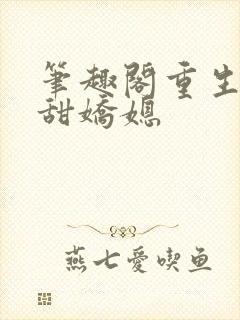 筆趣閣重生
甜嬌媳
燕七愛喫鱼